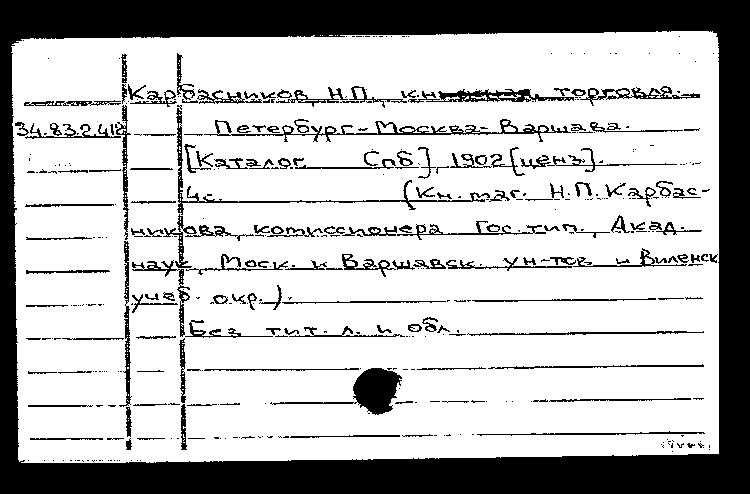 Карбасников, Н.П., кн. торговля.
34.83.2.418 Петербург-Москва-Варшава.
[Каталог Спб], 1902 [ценз.].
4с. (Кн. маг. Н.П. Карбас-
никова, комиссионера Гос. тип., Акад.
наук, Моск. и Варшавск. ун-тов и Виленск
учеб. окр.).
Без тит. л. и обл.